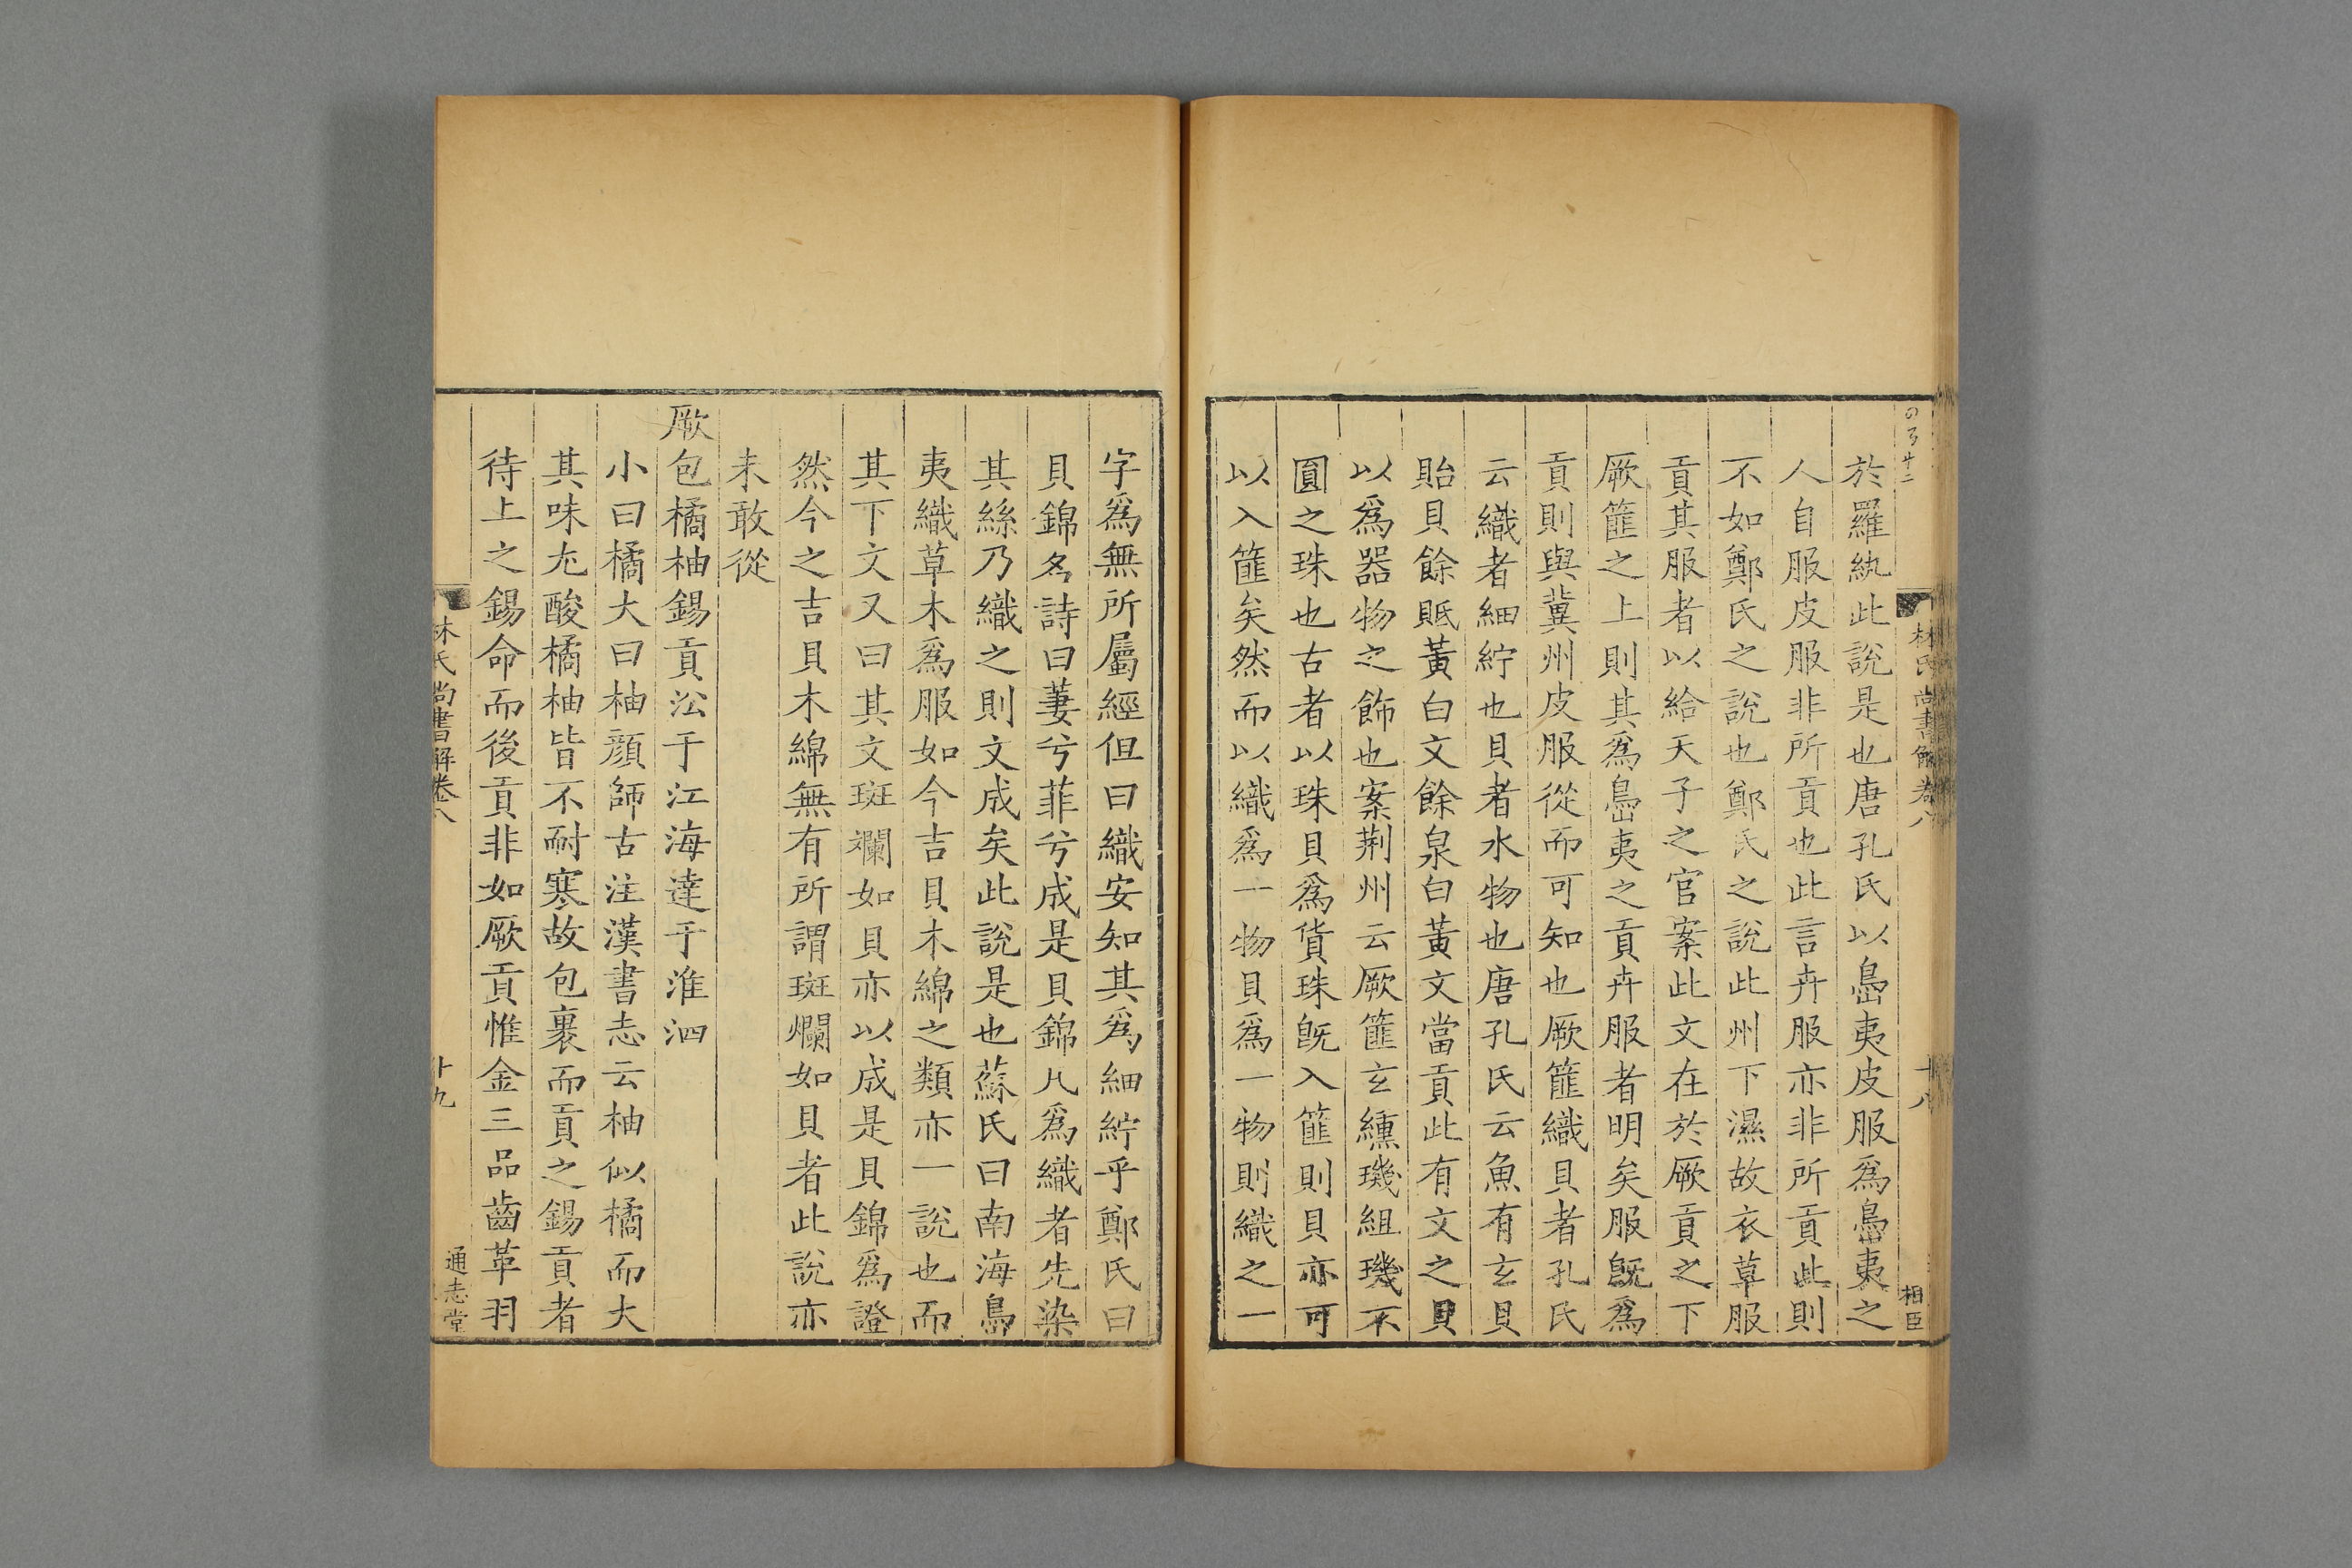 林氏尚書解卷八
十八
相臣
於羅紈此說是也唐孔氏以島夷皮服爲島夷之
人自服皮服非所貢也此言卉服亦非所貢此則
不如鄭氏之說也鄭氏之說此州下濕故衣草服
貢其服者以給天子之官案此文在於厥貢之下
厥篚之上則其爲島夷之貢卉服者明矣服旣爲
貢則與冀州皮服從而可知也厥篚織貝者孔氏
云織者細紵也貝者水物也唐孔氏云魚有玄貝
貽貝餘貾黃白文餘泉白黃文當貢此有文之貝
以爲器物之飾也案荆州云厥篚玄纁璣組璣不
圓之珠也古者以珠貝爲貨珠旣入篚則貝亦可
以入篚矣然而以織爲一物貝爲一物則織之一
字爲無所屬經但曰織安知其爲細紵乎鄭氏曰
貝錦名詩曰萋兮菲兮成是貝錦凡爲織者先染
其絲乃織之則文成矣此說是也蘇氏曰南海島
夷織草木爲服如今吉貝木綿之類亦一說也而
其下文又曰其文斑斕如貝亦以成是貝錦爲證
然今之吉貝木綿無有所謂斑爛如貝者此說亦
未敢從
厥包橘柚錫貢㳂于江海達于淮泗
小曰橘大曰柚顔師古注漢書志云柚似橘而大
其味尤酸橘柚皆不耐寒故包裹而貢之錫貢者
待上之錫命而後貢非如厥貢惟金三品齒革羽
林氏尚書解卷八
十九
通志堂